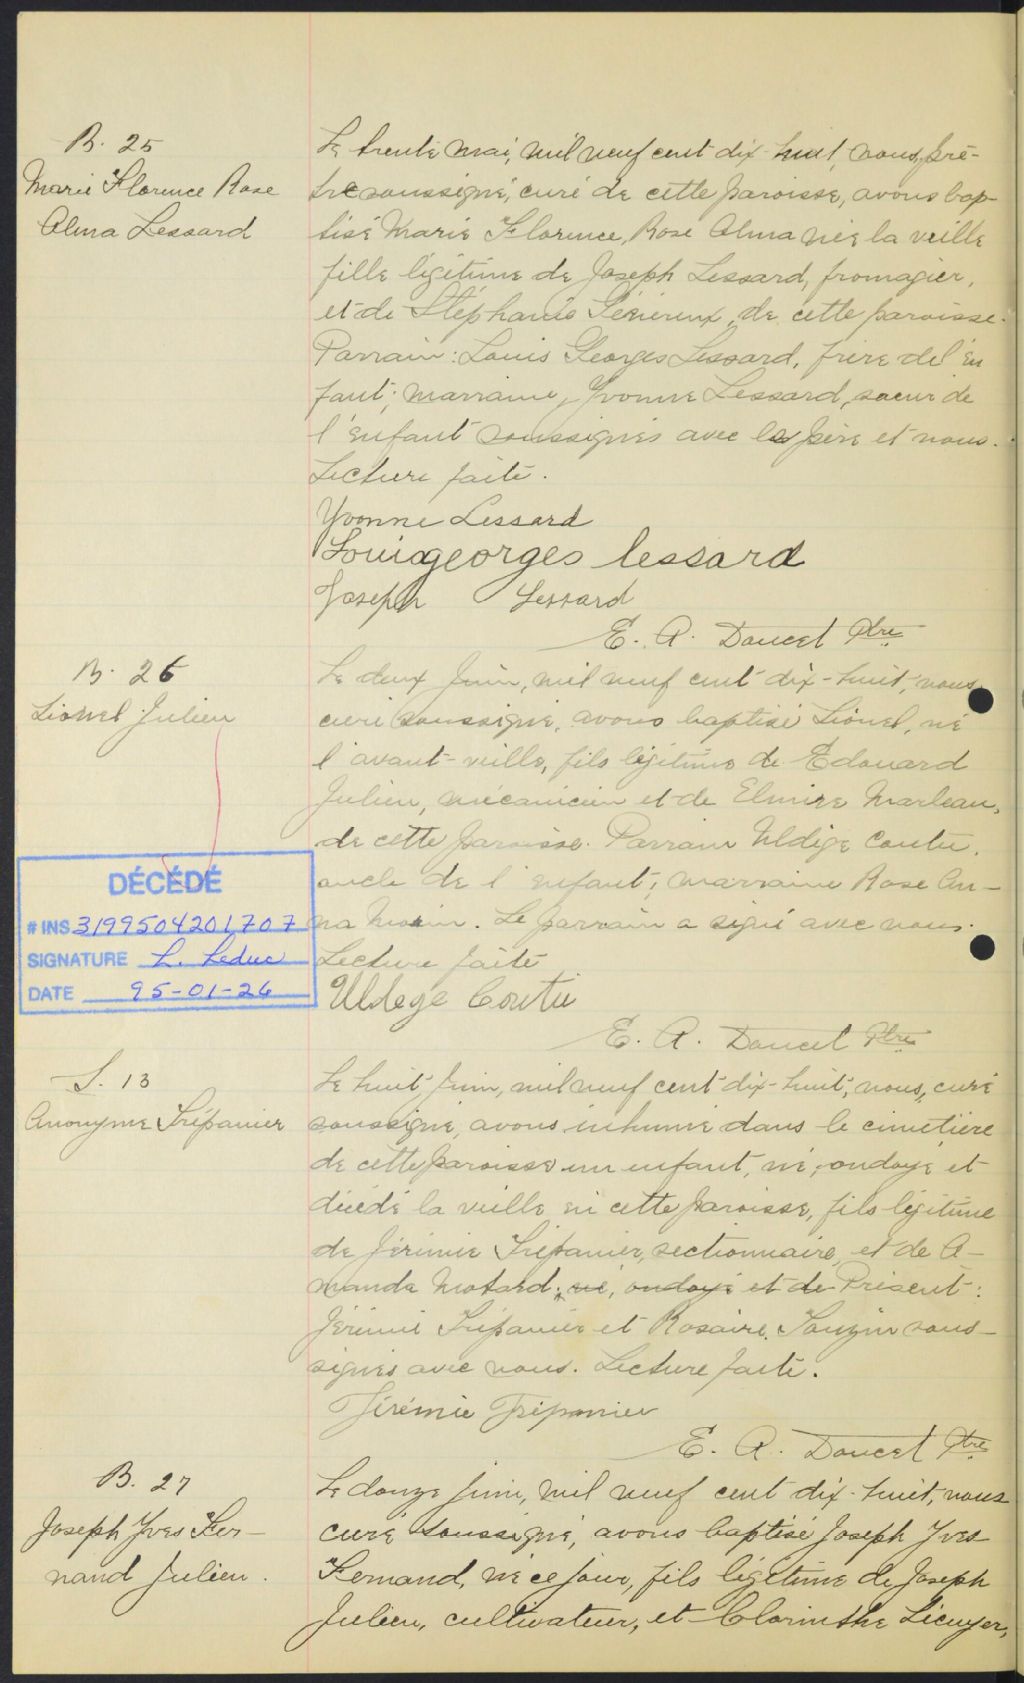 B. 25
Marie Florence Rose
Alma Lessard
Le trente mai, mil neuf cent dix-huit, nous, prê-
tre soussigné, curé de cette paroisse, avons bap-
tisé Marie Florence, Rose Alma née la veille
fille légitime de Joseph Lessard, fromagier,
et de Stéphanie de cette paroisse.
Parrain: Louis Georges Lessard, frère de l'en
fant; marraine, Yvonne Lessard, soeur de
l'enfant soussignés avec le père et nous.
Lecture faite.
Yvonne Lessard
Louisgeorges lessard
Joseph Lessard
E. A. Doucet Ptre
B. 26
Lionel Julien
Le deux Juin, mil neuf cent dix-huit, nous
curé soussigné, avons baptisé Lionel, né
l'avant-veille, fils légitime de Edouard
Julien, mécanicien et de Elmire Marleau,
de cette paroisse. Parrain Uldège Coutu,
oncle de l'enfant; marraine Rose An-
na Morin. Le parrain a signé avec nous.
Lecture faite
Uldege Coutu
E. A. Doucet Ptre
DÉCÉDÉ
# INS 3199504201707
SIGNATURE L. Leduc
DATE 95-01-26
S. 13
Anonyme Trépanier
Le huit Juin, mil neuf cent dix-huit, nous, curé
soussigné, avons inhumé dans le cimetière
de cette paroisse un enfant, né, ondoyé et
décédé la veille en cette paroisse, fils légitime
de Jérémie Trépanier, sectionnaire, et de A-
manda Motard, né, ondoyé et de Présent:
Jérémie Trépanier et Rosaire sous-
signés avec nous. Lecture faite.
Jérémie Trépanier
E. A. Doucet Ptre
B. 27
Joseph Yves Fer-
nand Julien.
Le douze juin, mil neuf cent dix-huit, nous
curé soussigné, avons baptisé Joseph Yves
Fernand, né ce jour, fils légitime de Joseph
Julien, cultivateur, et Clorinthe Lécuyer,